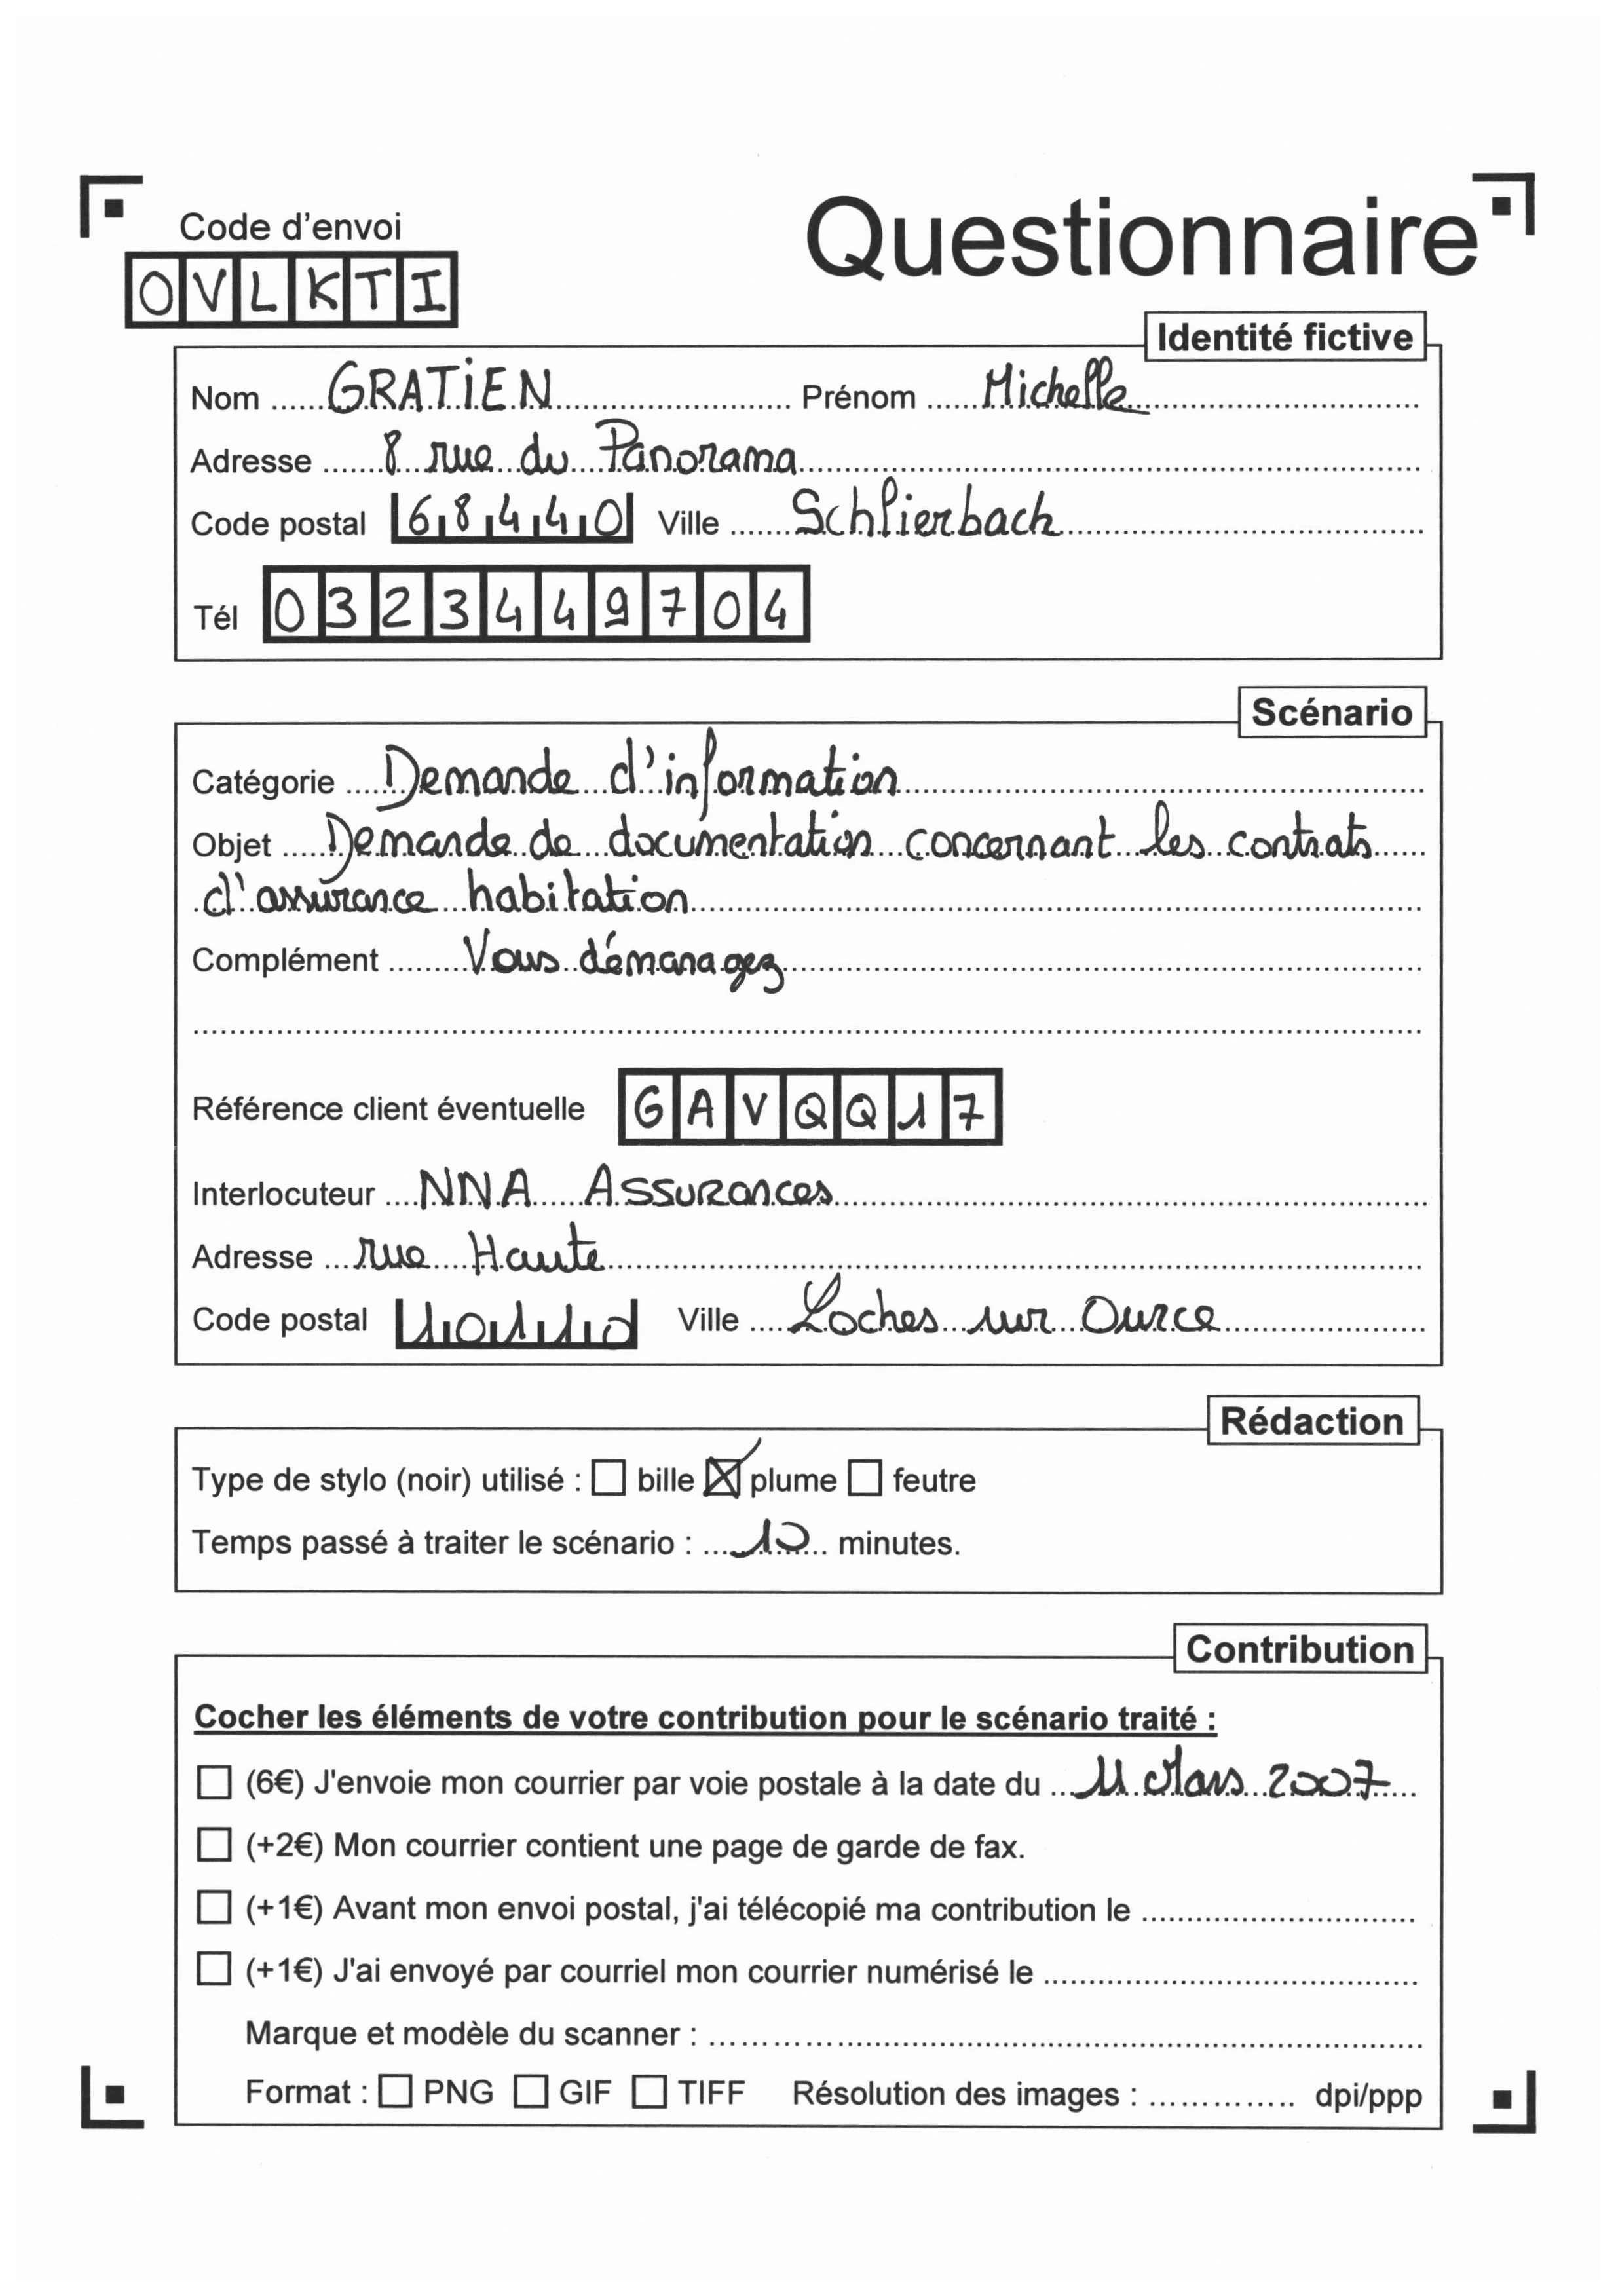 Code d'envoi
Questionnaire
OVLKTI
Identité fictive
Nom GRATIEN Prénom Michelle
Adresse 8 rue du Panorama
Code postal 68440 Ville Schlierbach
Tél 0323449704
Scénario
Catégorie Demande d'information
Objet Demande de documentation concernant les contrats
d'assurance habitation
Complément Vous démanagez
Référence client éventuelle GAVQQ17
Interlocuteur NNA Assurances
Adresse rue Haute
Code postal 10110 Ville Loches sur Ource
Rédaction
Type de stylo (noir) utilisé : ☐ bille ☒ plume ☐ feutre
Temps passé à traiter le scénario : 10 minutes.
Contribution
Cocher les éléments de votre contribution pour le scénario traité :
☐ (6€) J'envoie mon courrier par voie postale à la date du 11 Mars 2007
☐ (+2€) Mon courrier contient une page de garde de fax.
☐ (+1€) Avant mon envoi postal, j'ai télécopié ma contribution le
☐ (+1€) J'ai envoyé par courriel mon courrier numérisé le
Marque et modèle du scanner :
Format : ☐ PNG ☐ GIF ☐ TIFF Résolution des images : dpi/ppp